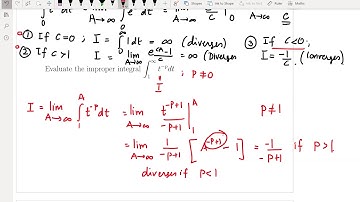 ∫ t dt = lim A→∞ ∫ e^ct dt = lim A→∞ c
① If C=0; I = ∫1dt = ∞ (diverges)
② If C>1 I = lim A→∞ (e^CA - 1)/C = ∞ (Diverges
③ If C<0,
I = -1/C. (Converges)
Evaluate the improper integral ∫₁^∞ t^-p dt ; P ≠ 0
I
I = lim A→∞ ∫₁^A t^-P dt = lim A→∞ t^(-P+1)/(-P+1) |₁^A P≠1
= lim A→∞ 1/(-P+1) [A^(-P+1) - 1] = -1/(-P+1) if P>1
diverges if P<1